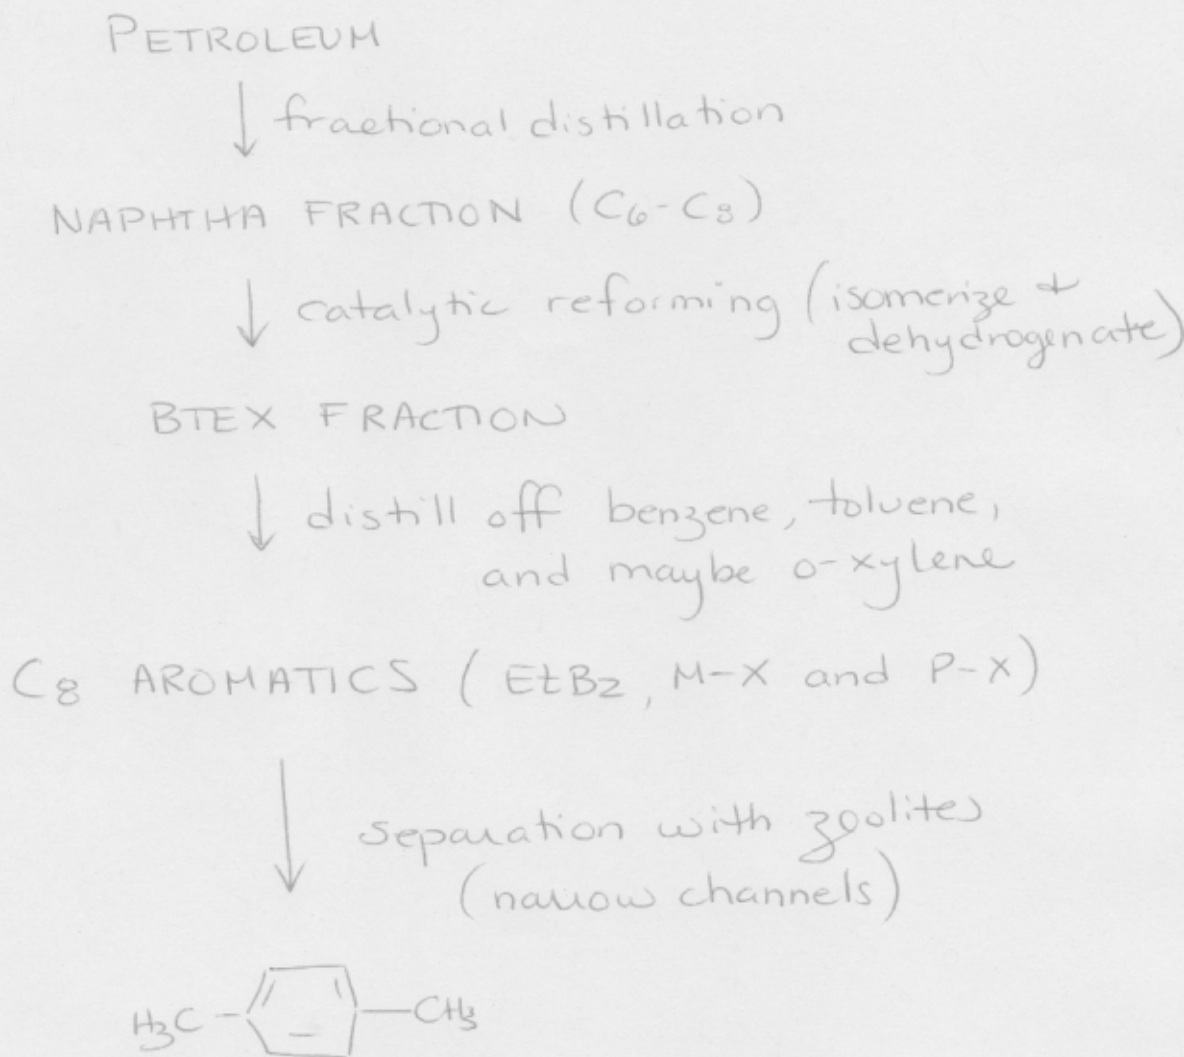 PETROLEUM
fractional distillation
NAPHTHA FRACTION (C6-C8)
catalytic reforming (isomerize +
dehydrogenate)
BTEX FRACTION
distill off benzene, toluene,
and maybe o-xylene
C8 AROMATICS (EtBz, M-X and P-X)
separation with zeolites
(narrow channels)
H3C CH3